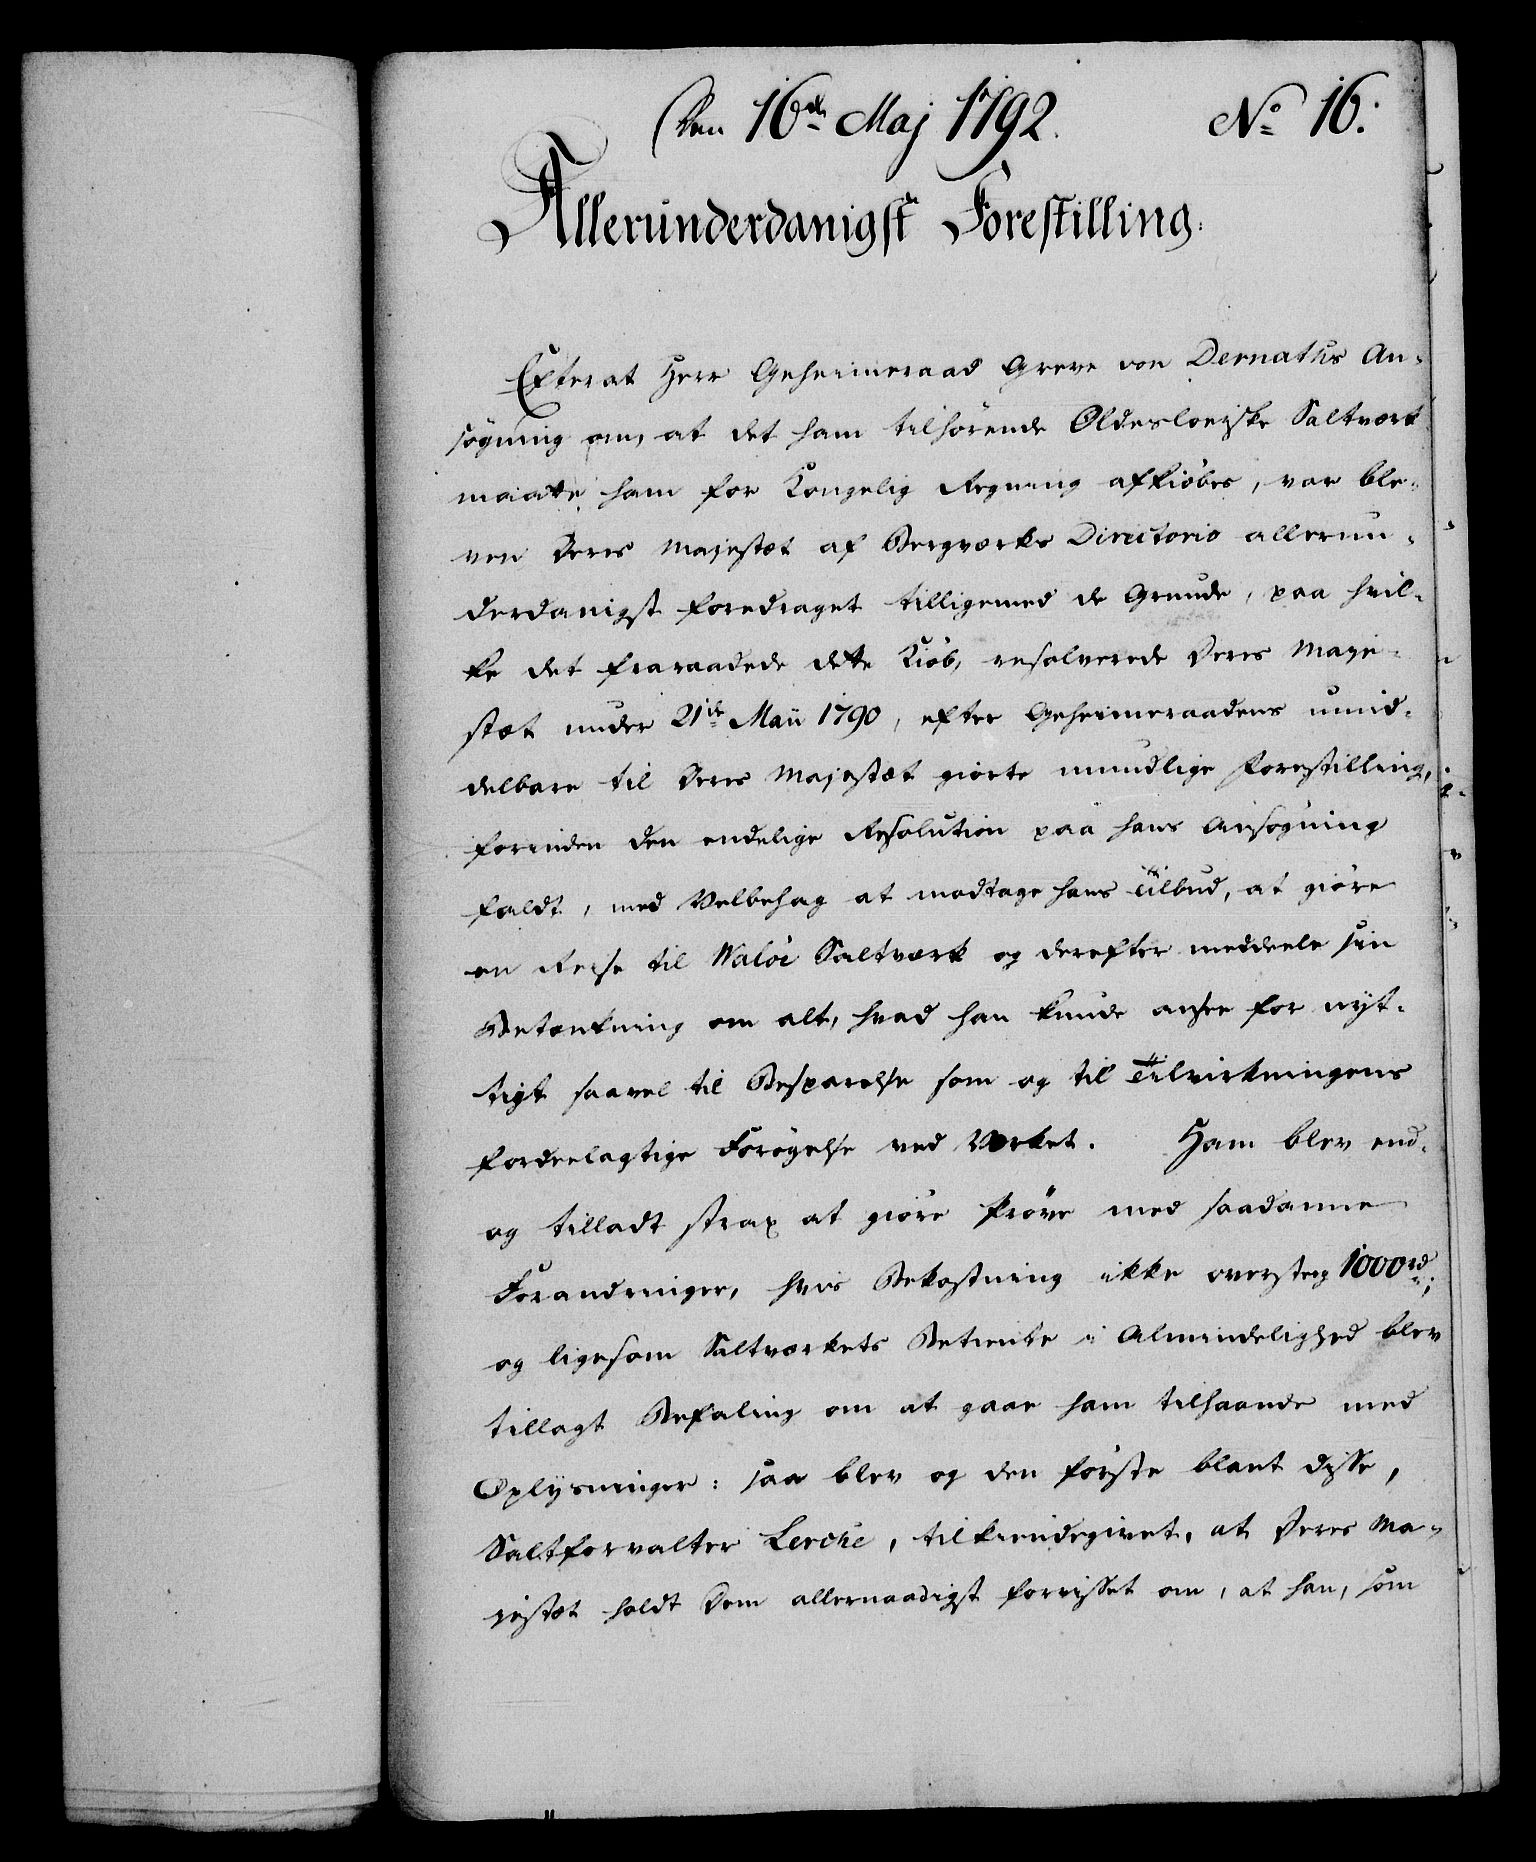 Den 16de Maj 1792. No 16.
Allerunderdanigst Forestilling.
Efterat Herr Geheimeraad Greve von Dernaths An-
søgning om, at det ham tilhørende Oldesloeiske Saltværk
maatte ham for Kongelig Regning afkiøbes, var ble-
ven Deres Majestæt af Bergværks Directorio allerun-
derdanigst foredraget tilligemed de Grunde, paa hvil-
ke det fraraadede dette Kiøb, resolverede Deres Maje-
stæt under 21de Maii 1790, efter Geheimeraadens umid-
delbare til Deres Majestæt giorte mundtlige Forestilling,
forinden den endelige Resolution paa hans Ansøgning
faldt, med Velbehag at modtage hans Tilbud, at giøre
en Reise til Waløe Saltværk og derefter meddeele sin
Betænkning om alt, hvad han kunde ansee for nyt-
tigt saavel til Besparelse som og til Tilvirkningens
fordeelagtige Forøgelse ved Værket. Ham blev end-
og tilladt strax at giøre Prøve med saadanne
Forandringer, hvis Bekostning ikke oversteeg 1000 rd;
og ligesom Saltværkets Betiente i Almindelighed blev
tillagt Befaling om at gaae ham tilhaande med
Oplysninger: saa blev og den første blant disse,
Saltforvalter Lerche, tilkiendegivet, at Deres Ma-
jestæt holdt Dem allernaadigst forvisset om, at han, som